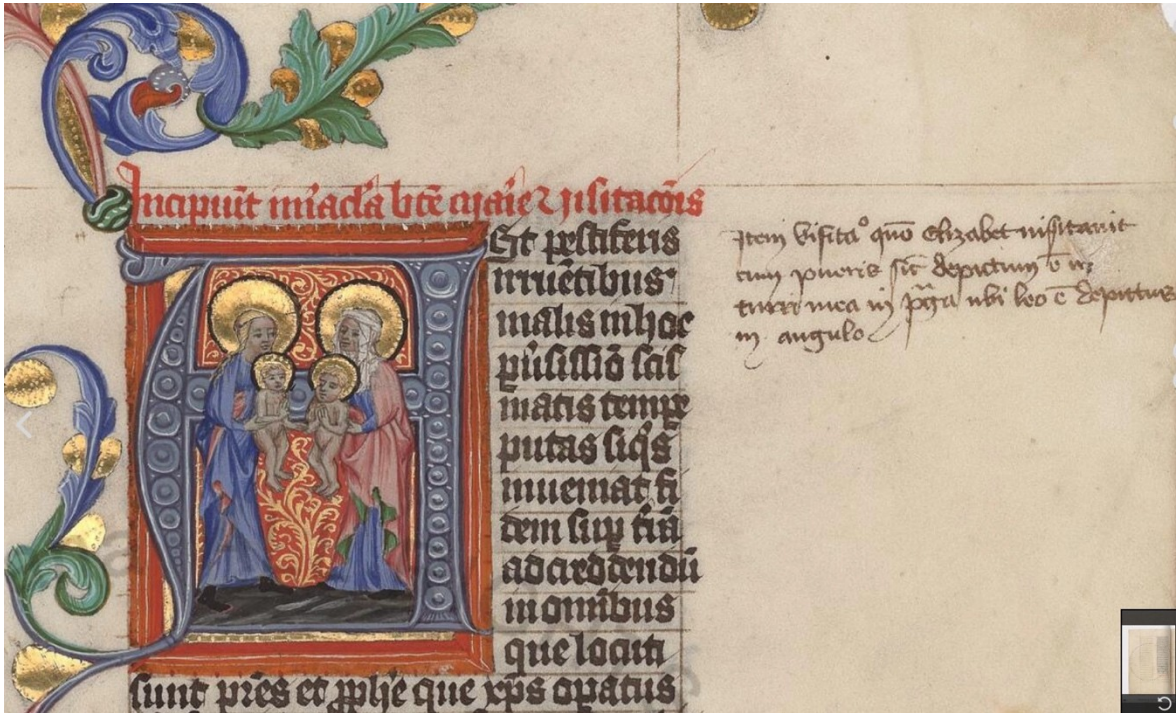 Incipiūt miraclā btē marie visitacōis
Et pestiferis
irruētibus
malis in hoc
pn̄sissīo scis
matis tempe
putas siq̄s
inueniat fi
dem sup t̄rā
ad credendū
in om̄ibus
que locuti
sunt pr̄es et pphē que xp̄s opatus
Item visitaᵒ quō Elizabet visitauit
cum pueris sic depictum ē in
turri mea in pᵃga ubi leo ē depictus
in angulo